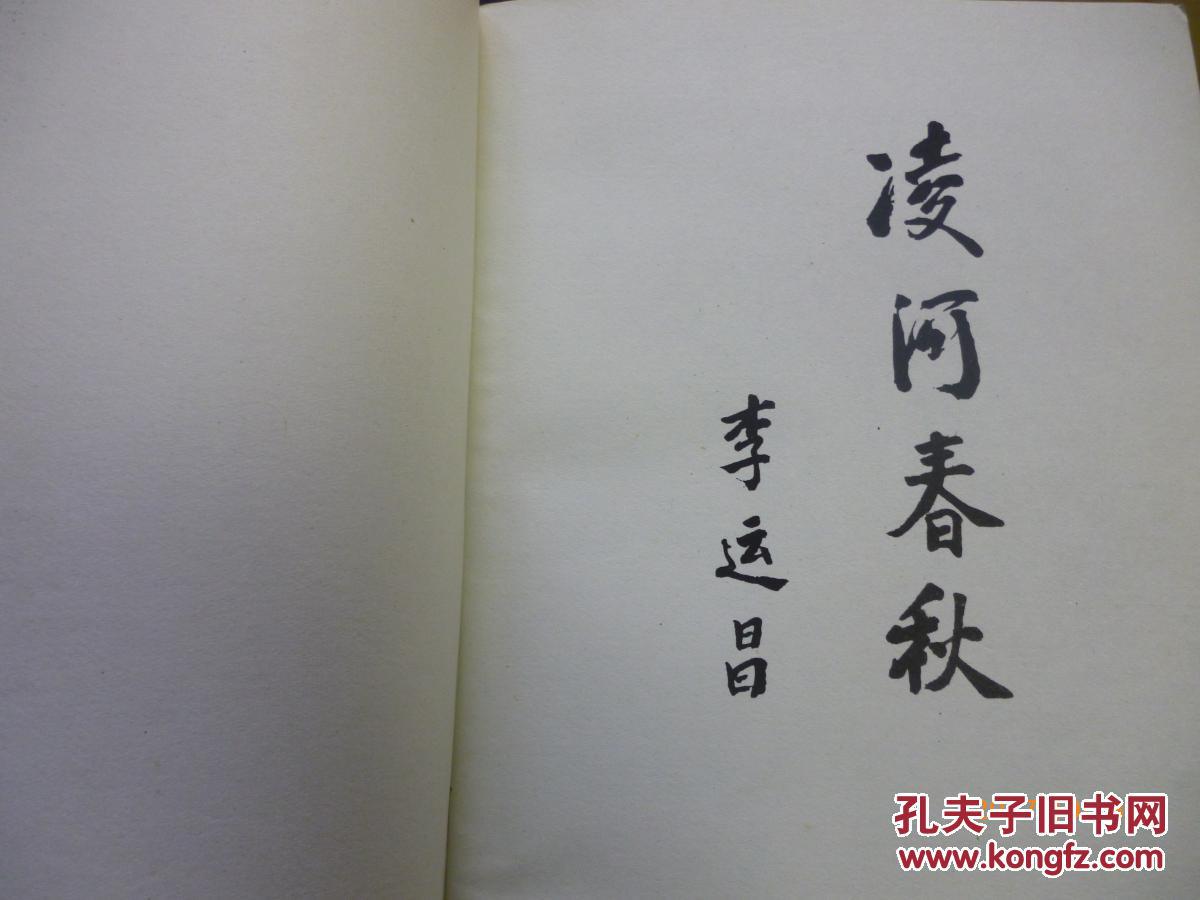 凌河春秋
李运昌
孔夫子旧书网
www.kongfz.com